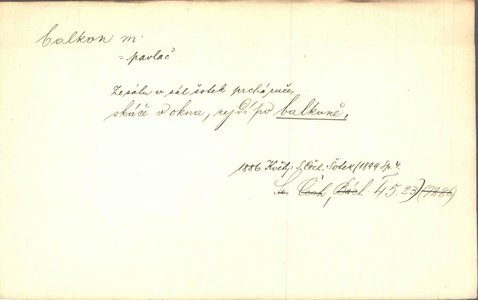 balkon m.
= pavlač
Ze sálu v sál šotek prchá ruče,
skáče v okna, rejdí po balkoně,
1886 Květy. S. Čech: Šotek (1899 Sp. 4.
Sv. Čech, Šách. II 5 23) (1886)